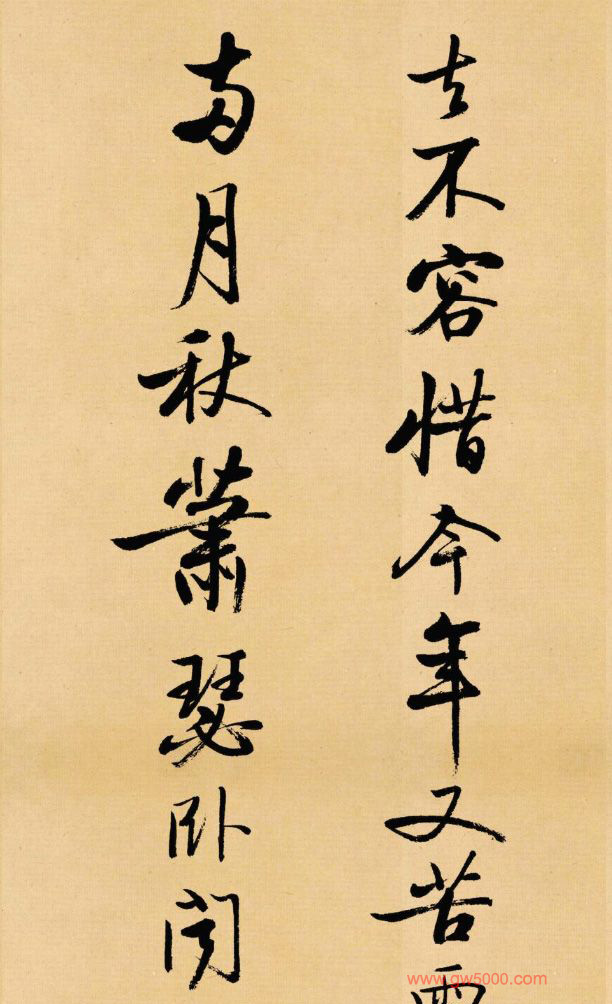 去不容惜今年又苦雨
両月秋蕭瑟卧聞
www.gw5000.com